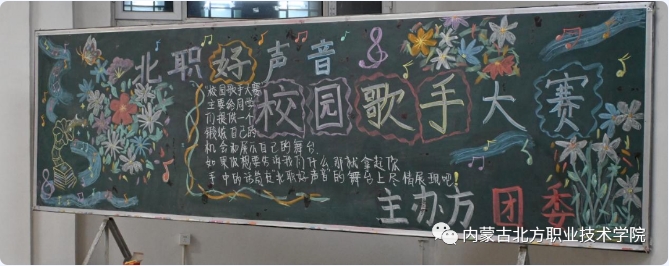 北职好声音
校园歌手大赛
校园歌手大赛
主要给同学
们提供一个
锻炼自己的
机会和展示自己的舞台
如果你想要告诉我们什么那就拿起你
手中的话筒在北职好声音的舞台上尽情展现吧!
主办方 团委
内蒙古北方职业技术学院